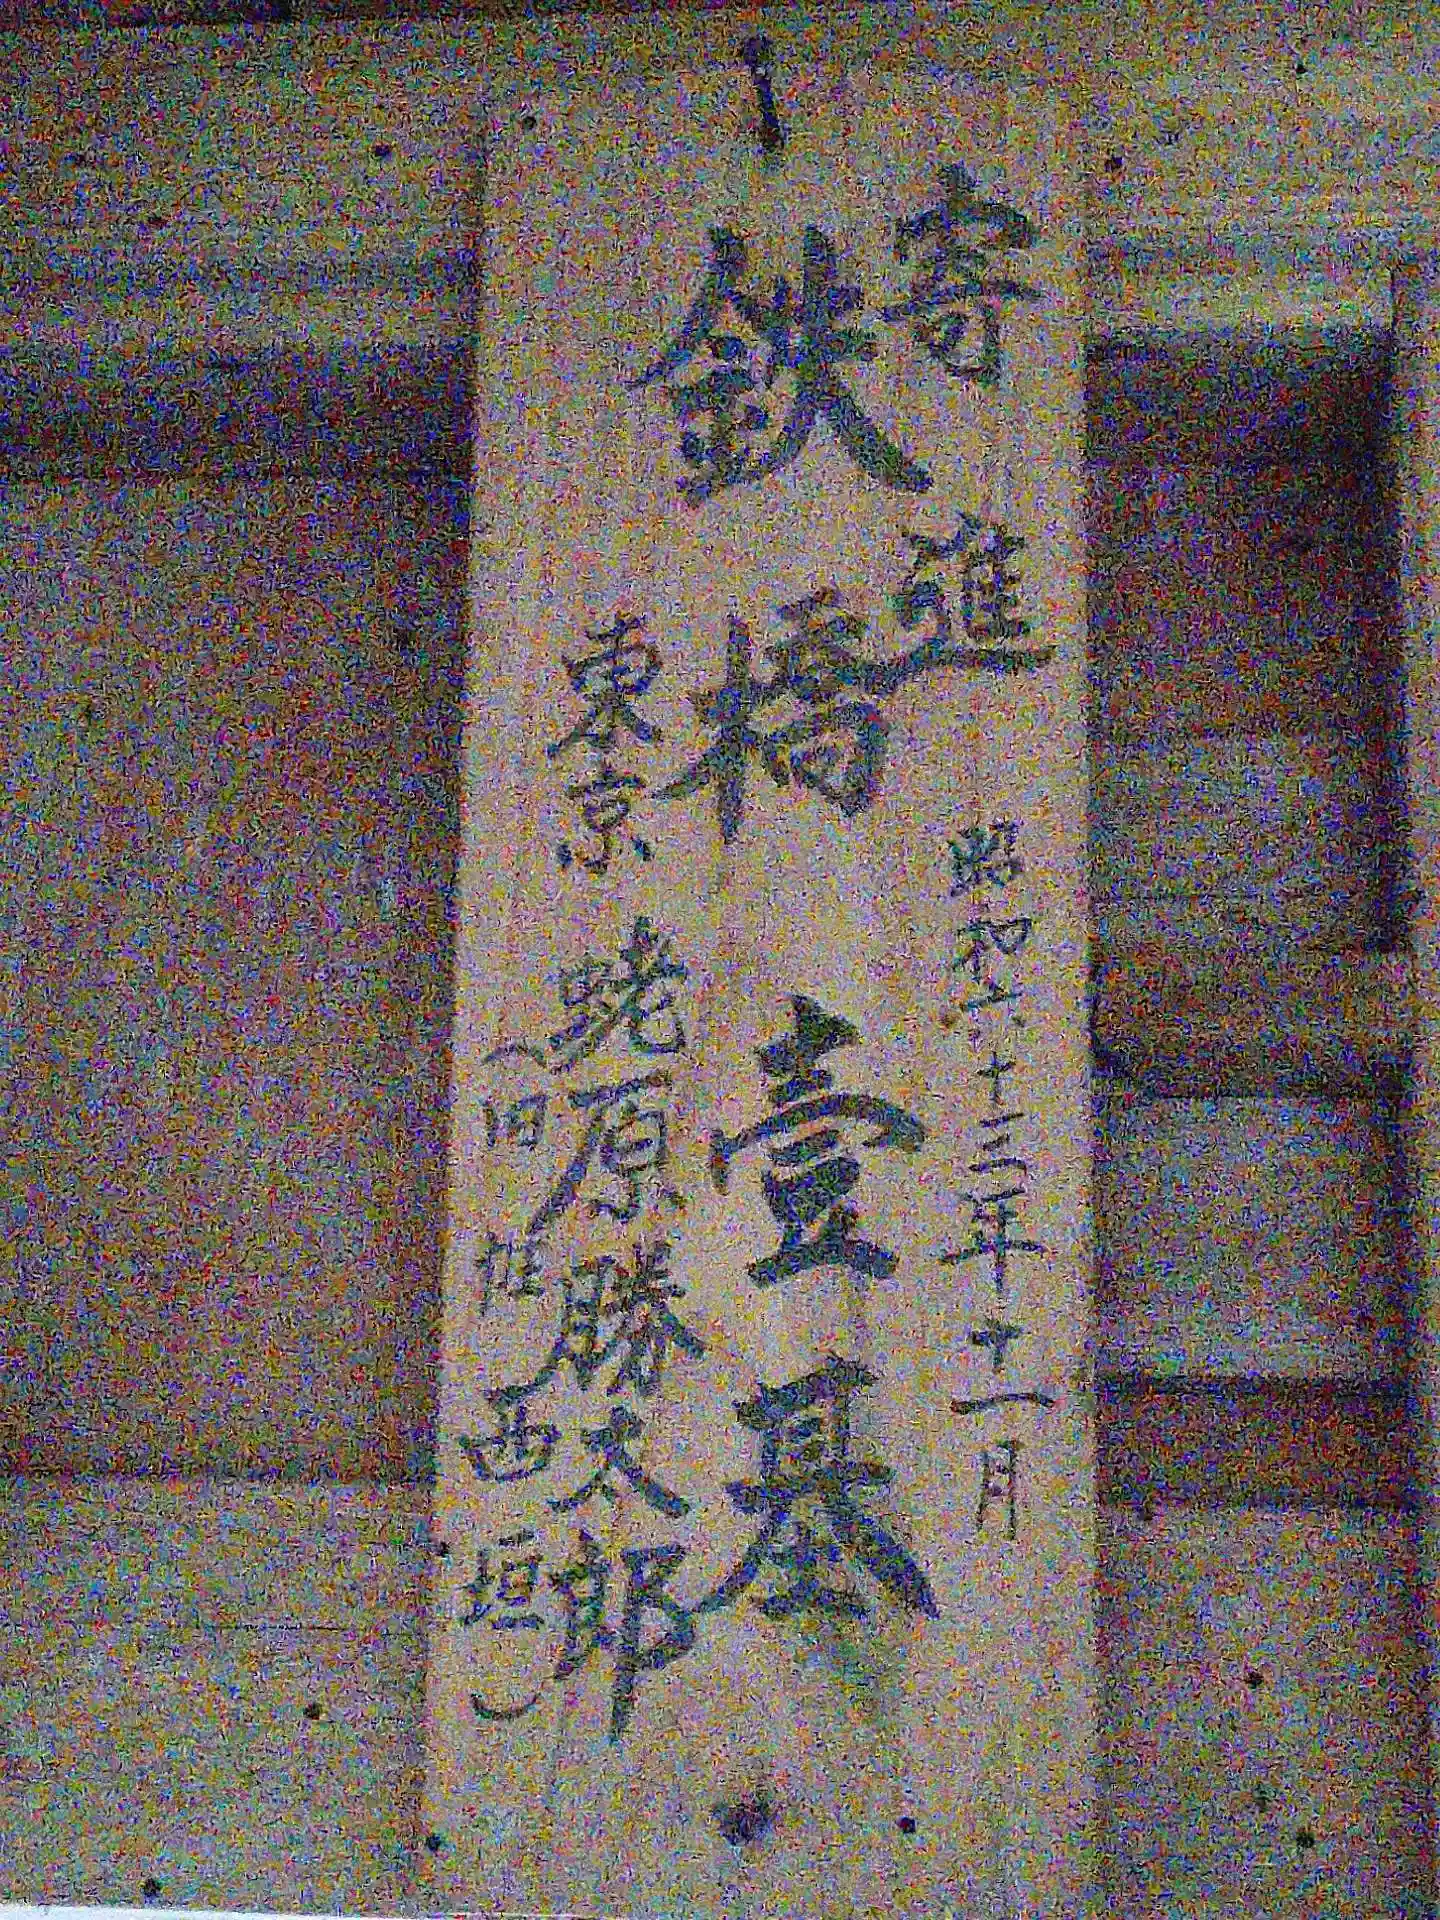 寄進 昭和六十三年十一月
鉄橋壹基
東京 蛯原勝太郎
(旧姓西垣)